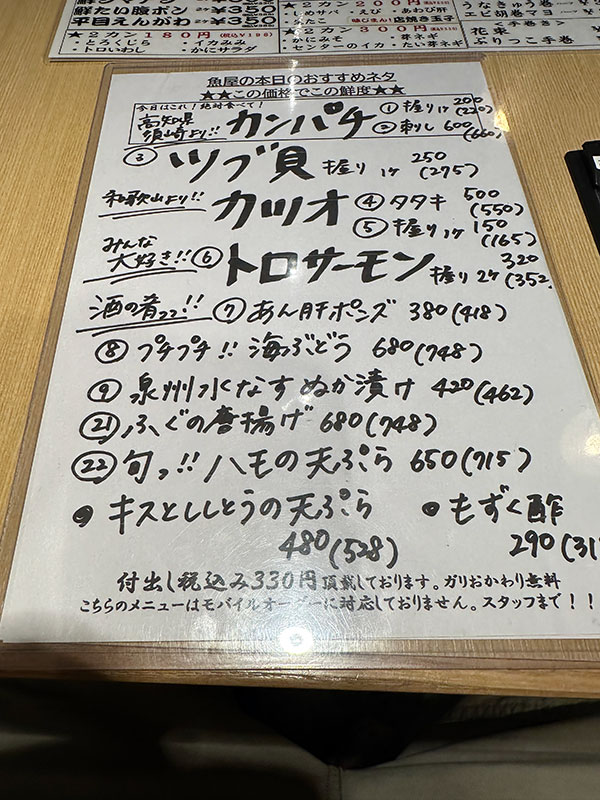 ¥350
鮮たい腹ポン 2ケ ¥350
平目えんがわ 2ケ ¥350
★2カン 180円 (税込¥198)
・とろくじら ・イカみみ
・トロいわし ・かにサラダ
★2カン 200円
・しめサバ ・えび ・あわび肝
・うたこ 味じまん!店焼き玉子
★2カン 300円
・かにみそ ・芽ネギ
・センターのイカ ・たい芽ネギ
うなきゅう巻
エビ胡巻
<手巻き>
花束
ぶりっこ手巻
魚屋の本日のおすすめネタ
★★この価格でこの鮮度★★
今日はこれ!絶対食べて!
高知県須崎より!! カンパチ ① 握り1ケ 200 (220)
② 刺し 600 (660)
③ ツブ貝 握り1ケ 250 (275)
和歌山より!! カツオ ④ タタキ 500 (550)
⑤ 握り1ケ 150 (165)
みんな大好き!! ⑥ トロサーモン 握り2ケ 320 (352
酒の肴つつ!! ⑦ あん肝ポンズ 380(418)
⑧ プチプチ!! 海ぶどう 680(748)
⑨ 泉州水なすぬか漬け 420(462)
㉑ ふぐの唐揚げ 680(748)
㉒ 旬っ!! ハモの天ぷら 650(715)
● キスとししとうの天ぷら 480(528)
● もずく酢 290(31
付出し税込み330円頂戴しております。ガリおかわり無料
こちらのメニューはモバイルオーダーに対応しておりません。スタッフまで!!